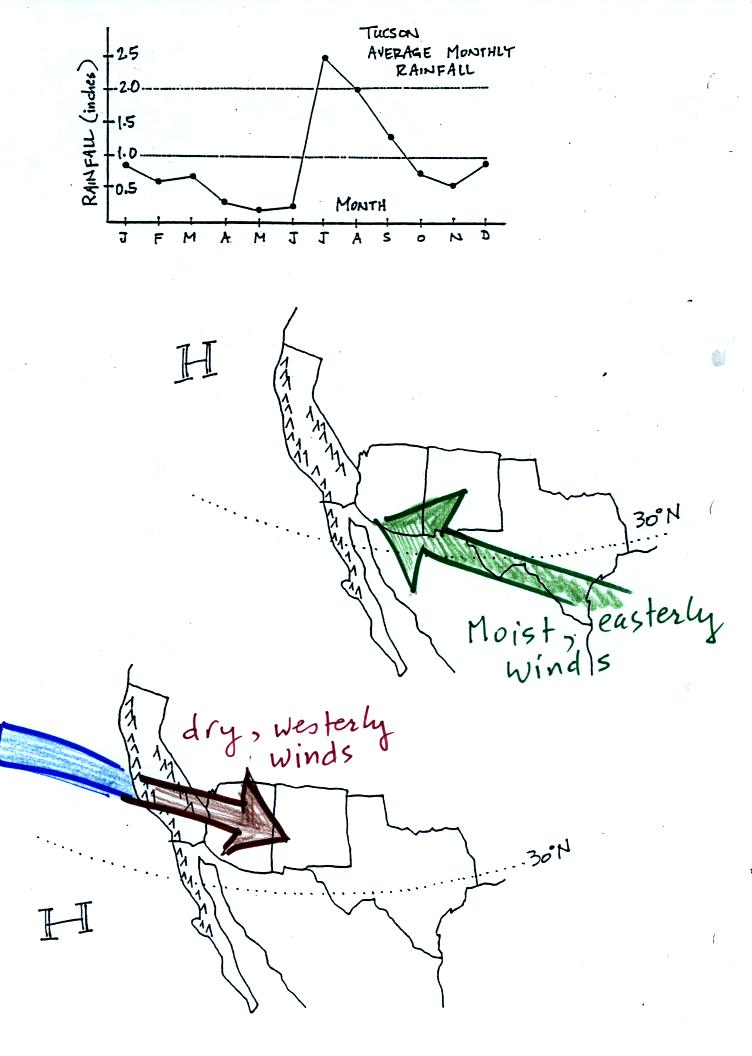 TUCSON
AVERAGE MONTHLY
RAINFALL
RAINFALL (inches)
2.5
2.0
1.5
1.0
0.5
MONTH
J F M A M J J A S O N D
H
30°N
Moist, easterly
winds
dry, westerly
winds
30°N
H